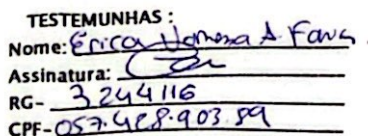 TESTEMUNHAS :
Nome: Erica A. Faus
Assinatura:
RG- 3244116
CPF-057.428.903.89